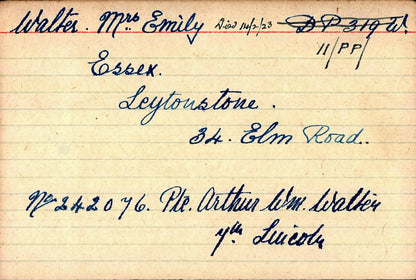 Walter. Mrs Emily Died 14/2/23 D.P. 319 W.
11/PP/
Essex.
Leytonstone.
34. Elm Road.
No 242076. Pte. Arthur Wm. Walter
7th Lincoln